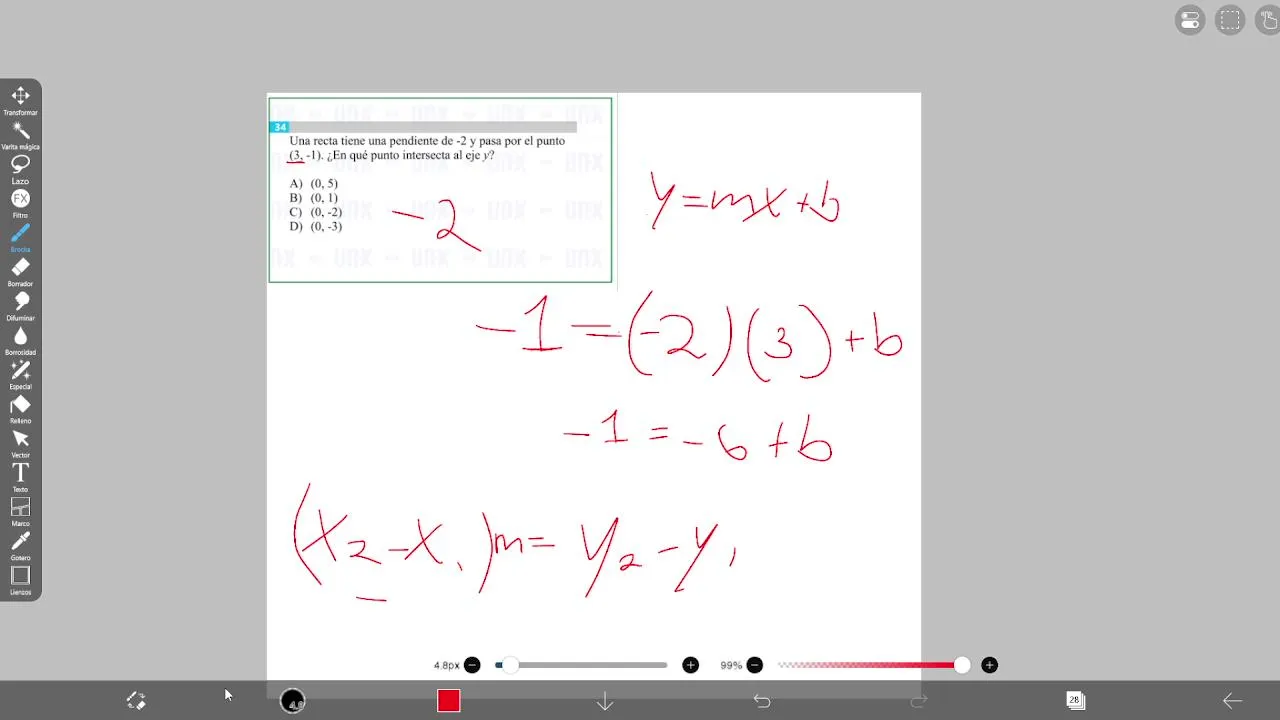 Transformar
Varita mágica
Lazo
FX
Filtro
Brocha
Borrador
Difuminar
Borrosidad
Especial
Relleno
Vector
T
Texto
Marco
Gotero
Lienzos
34
Una recta tiene una pendiente de -2 y pasa por el punto
(3, -1). ¿En qué punto intersecta al eje y?
A) (0, 5)
B) (0, 1)
C) (0, -2)
D) (0, -3)
-2
y = mx + b
-1 = (-2)(3) + b
-1 = -6 + b
(x2 - x1)m = y2 - y1
4.8px
99%
4.8
28